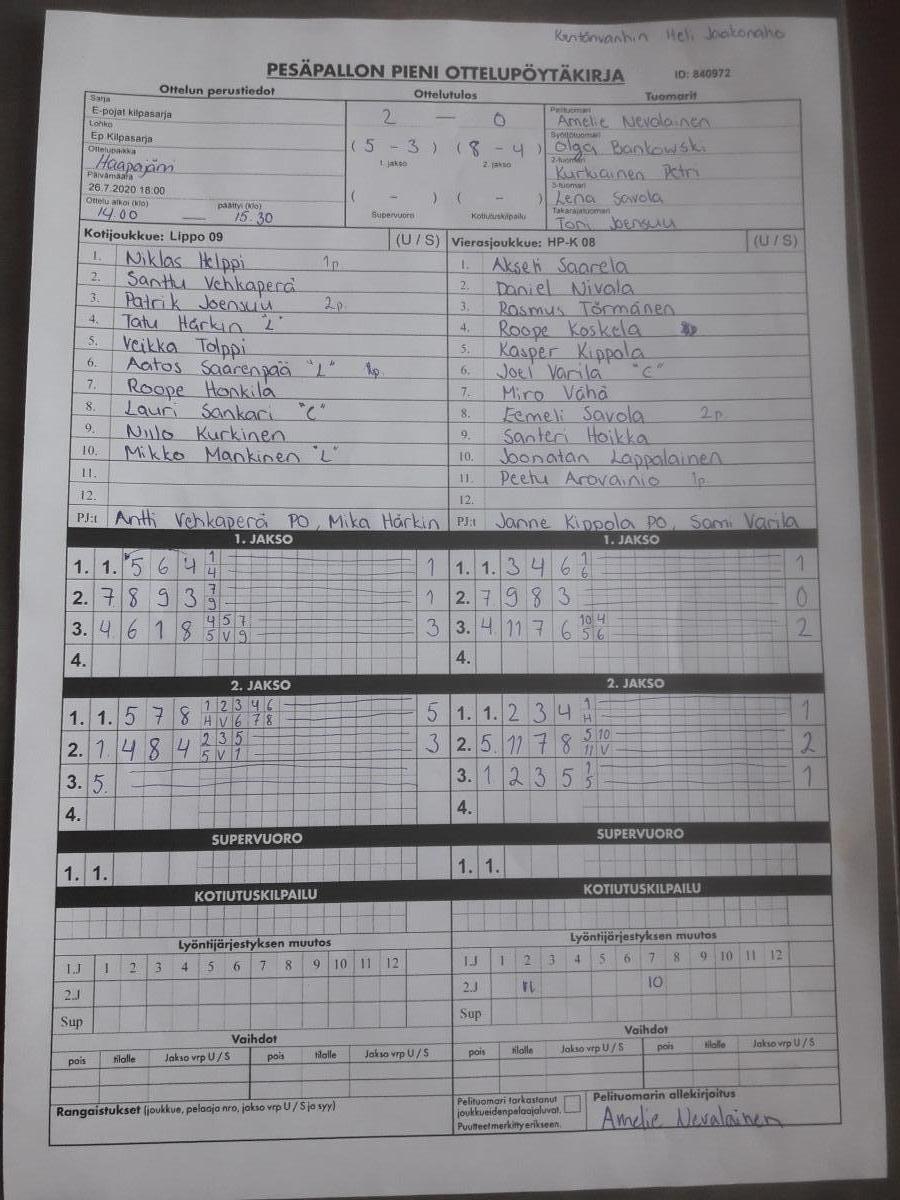 Kentänvanhin Heli Jaakonaho
PESÄPALLON PIENI OTTELUPÖYTÄKIRJA ID: 840972
Ottelun perustiedot Ottelutulos Tuomarit
Sarja
E-pojat kilpasarja
Lohko
Ep Kilpasarja
Ottelupaikka
Haapajärvi
Päivämäärä
26.7.2020 16:00
Ottelu alkoi (klo) päättyi (klo)
14.00 — 15.30
2 — 0
(5 - 3) (8 - 4)
1. jakso 2. jakso
( - ) ( - )
Supervuoro Kotiutuskilpailu
Pelituomari
Amelie Nevalainen
Syöttötuomari
Olga Bankowski
2-tuomari
Kurkiainen Petri
3-tuomari
Lena Savola
Takarajatuomari
Toni Joensuu
Kotijoukkue: Lippo 09 (U / S)
1. Niklas Helppi 1p
2. Santtu Vehkaperä
3. Patrik Joensuu 2p.
4. Tatu Härkin "L"
5. Veikka Tolppi
6. Aatos Saarenpää "L"
7. Roope Honkila
8. Lauri Sankari "C"
9. Niilo Kurkinen
10. Mikko Mankinen "L"
11.
12.
PJ:t Antti Vehkaperä PO, Mika Härkin
Vierasjoukkue: HP-K 08 (U / S)
1. Akseli Saarela
2. Daniel Nivala
3. Rasmus Törmänen
4. Roope Koskela
5. Kasper Kippola
6. Joel Varila "C"
7. Miro Vähä
8. Eemeli Savola 2p.
9. Santeri Hoikka
10. Joonatan Lappalainen
11. Peetu Arovainio 1p
12.
PJ:t Janne Kippola PO, Sami Varila
1. JAKSO
1. 1. 5 6 4 1 1
4
2. 7 8 9 3 7 1
9
3. 4 6 1 8 4 5 7 3
5 V 9
4.
1. JAKSO
1. 1. 3 4 6 1 1
6
2. 7 9 8 3 0
3. 4 11 7 6 10 4 2
5 6
4.
2. JAKSO
1. 1. 5 7 8 1 2 3 4 6 5
H V 6 7 8
2. 1 4 8 4 2 3 5 3
5 V 1
3. 5.
4.
2. JAKSO
1. 1. 2 3 4 1 1
H
2. 5 11 7 8 5 10 2
11 V
3. 1 2 3 5 1 1
5
4.
SUPERVUORO
1. 1.
SUPERVUORO
1. 1.
KOTIUTUSKILPAILU
KOTIUTUSKILPAILU
Lyöntijärjestyksen muutos
1.J 1 2 3 4 5 6 7 8 9 10 11 12
2.J
Sup
Lyöntijärjestyksen muutos
1.J 1 2 3 4 5 6 7 8 9 10 11 12
2.J 11 10
Sup
Vaihdot
pois tilalle Jakso vrp U / S pois tilalle Jakso vrp U / S
Vaihdot
pois tilalle Jakso vrp U / S pois tilalle Jakso vrp U / S
Rangaistukset (joukkue, pelaaja nro, jakso vrp U / S ja syy)
Pelituomari tarkastanut
joukkueidenpelaajaluvat.
Puutteet merkitty erikseen.
Pelituomarin allekirjoitus
Amelie Nevalainen